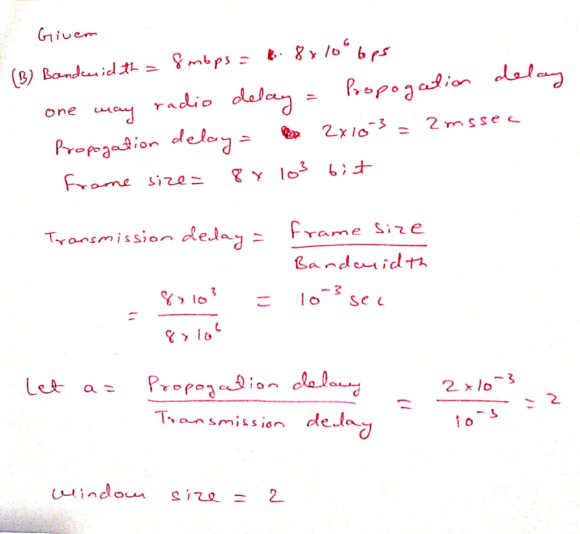 Given
(B) Bandwidth = 8mbps = 8 x 10^6 bps
one way radio delay = Propogation delay
Propogation delay = 2x10^-3 = 2mssec
Frame size = 8 x 10^3 bit
Transmission delay = Frame Size / Bandwidth
= 8 x 10^3 / 8 x 10^6 = 10^-3 sec
Let a = Propogation delay / Transmission delay = 2 x 10^-3 / 10^-3 = 2
window size = 2